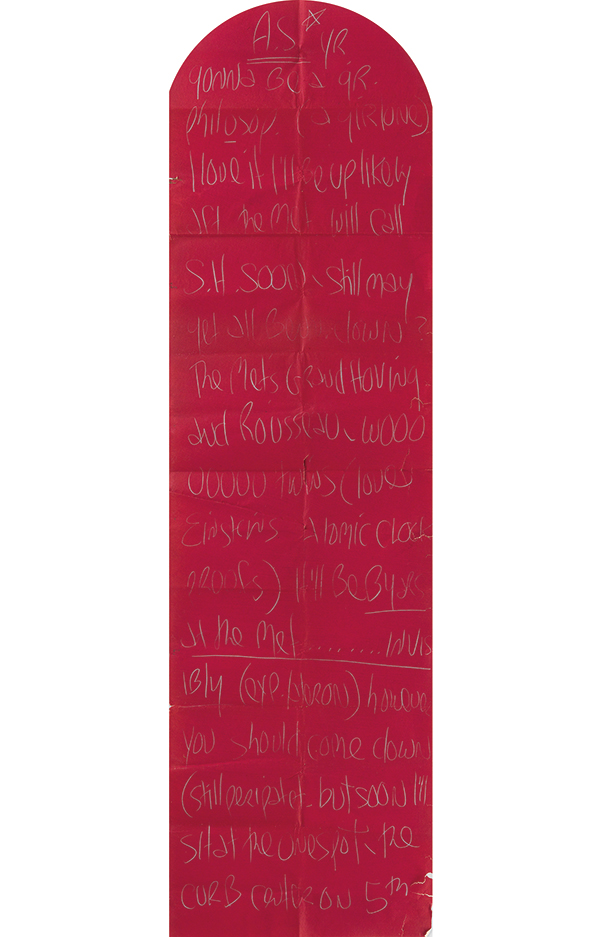 A.S☆ YR
gonna BE a gR.
philosop. (
I love it I'll be up likely
At the Met will call
S.H. SOON, still may
get all down?
The Mets Graud Hoving
and Rousseau, WOOO
OOOO twins (loved
Einsteins Atomic Clock
PROOFS) It'll Be By
at the Met......... INVIS
IBly (exp. Aeron) however
you should come down
(still peripatet. but soon I'll
sit at the one spot, the
CURB center ON 5th